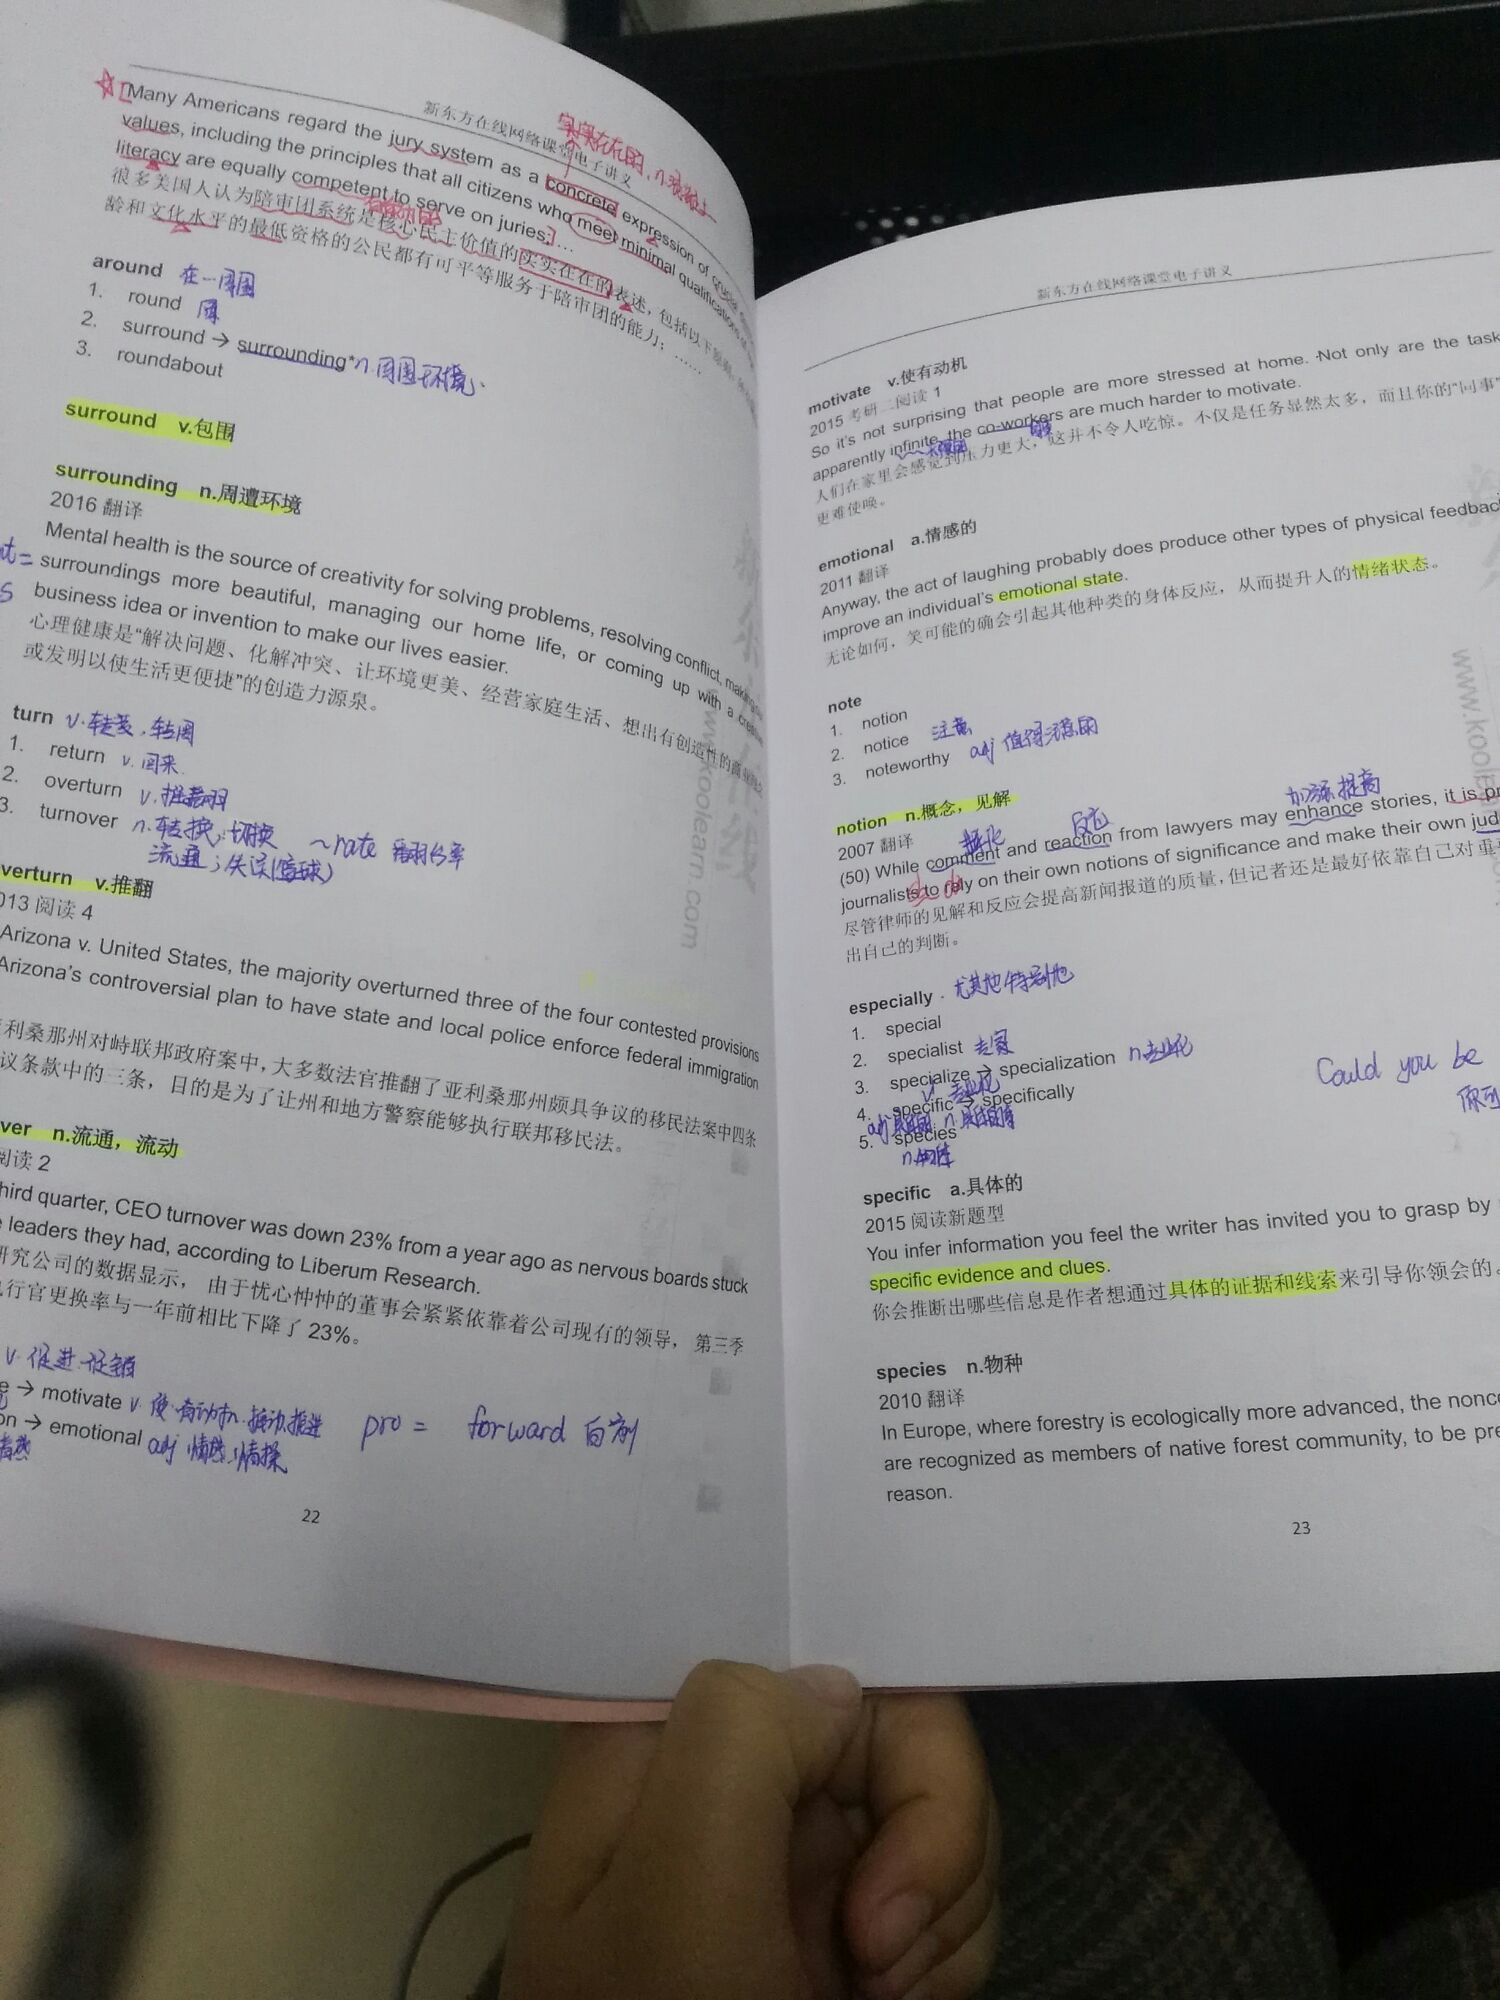 新东方在线网络课堂电子讲义
实实在在的, n.
Many Americans regard the jury system as a concrete expression of crucial
values, including the principles that all citizens who meet minimal qualifications of
literacy are equally competent to serve on juries; …
很多美国人认为陪审团系统是核心民主价值的实实在在的表述，包括以下原则：
龄和文化水平的最低资格的公民都有可平等服务于陪审团的能力；……
around 在一周围
1. round 周
2. surround → surrounding* n.周围环境.
3. roundabout
surround v.包围
surrounding n.周遭环境
2016 翻译
Mental health is the source of creativity for solving problems, resolving conflict, making
surroundings more beautiful, managing our home life, or coming up with a creative
business idea or invention to make our lives easier.
心理健康是“解决问题、化解冲突、让环境更美、经营家庭生活、想出有创造性的商业
或发明以使生活更便捷”的创造力源泉。
turn v.转变,转周
1. return v.回来
2. overturn v.推翻
3. turnover n.转换;切换 ~rate 翻台率
流通;失误(篮球)
verturn v.推翻
013 阅读 4
Arizona v. United States, the majority overturned three of the four contested provisions
Arizona’s controversial plan to have state and local police enforce federal immigration
利桑那州对峙联邦政府案中，大多数法官推翻了亚利桑那州颇具争议的移民法案中四条
议条款中的三条，目的是为了让州和地方警察能够执行联邦移民法。
ver n.流通，流动
阅读 2
hird quarter, CEO turnover was down 23% from a year ago as nervous boards stuck
e leaders they had, according to Liberum Research.
研究公司的数据显示， 由于忧心忡忡的董事会紧紧依靠着公司现有的领导， 第三季
行官更换率与一年前相比下降了 23%。
v.促进.促销
e → motivate v.使有动机.推动,推进
on → emotional adj 情感,情操
pro = forward 向前
22
www.koolearn.com
新东方在线网络课堂电子讲义
motivate v.使有动机
2015 考研二阅读 1
So it’s not surprising that people are more stressed at home. Not only are the task
apparently infinite, the co-workers are much harder to motivate.
人们在家里会感觉到压力更大，这并不令人吃惊。不仅是任务显然太多，而且你的“同事”
更难使唤。
emotional a.情感的
2011 翻译
Anyway, the act of laughing probably does produce other types of physical feedback
improve an individual’s emotional state.
无论如何，笑可能的确会引起其他种类的身体反应，从而提升人的情绪状态。
note
1. notion
2. notice 注意
3. noteworthy adj 值得注意的
notion n.概念，见解
加强.提高
反应
2007 翻译
(50) While comment and reaction from lawyers may enhance stories, it is pr
journalists to rely on their own notions of significance and make their own jud
尽管律师的见解和反应会提高新闻报道的质量，但记者还是最好依靠自己对重
出自己的判断。
especially 尤其地 特别地
1. special
2. specialist 专家
3. specialize → specialization n专业化
v.专业化
4. specific → specifically
5. species
n.物种
Could you be
specific a.具体的
2015 阅读新题型
You infer information you feel the writer has invited you to grasp by
specific evidence and clues.
你会推断出哪些信息是作者想通过具体的证据和线索来引导你领会的。
species n.物种
2010 翻译
In Europe, where forestry is ecologically more advanced, the nonco
are recognized as members of native forest community, to be pre
reason.
23
www.koole